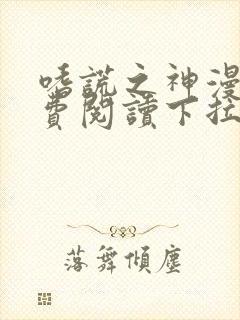 嗜謊之神漫
費閱讀下拉
落舞傾塵